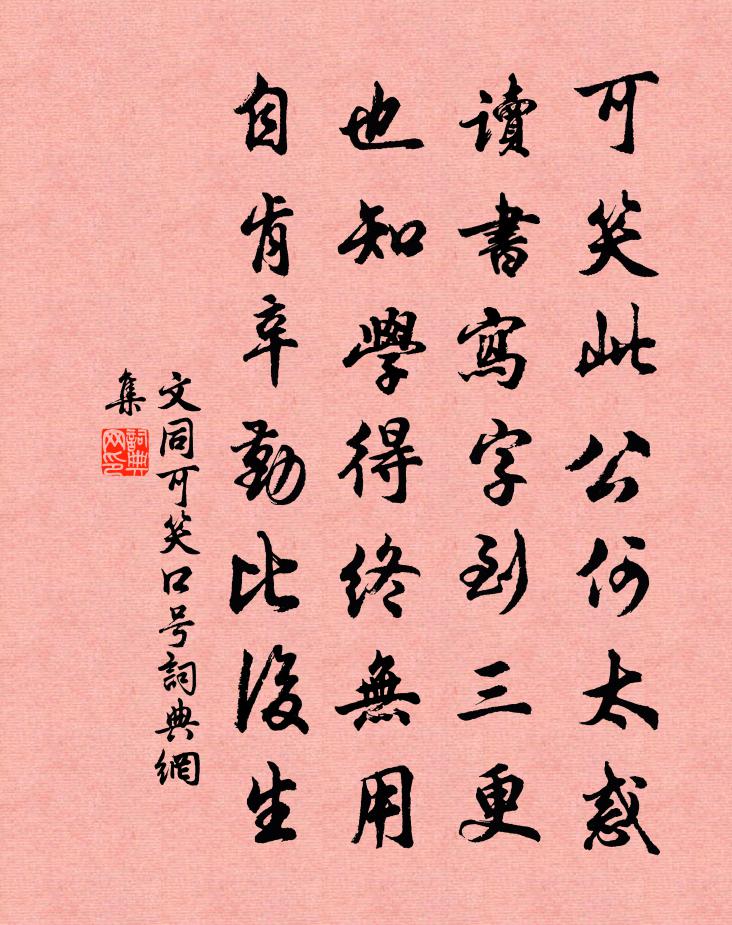 可笑此公何太惑
讀書寫字到三更
也知學得終無用
自肯辛勤比後生
文同可笑口号詞典網
集
詞典
网印